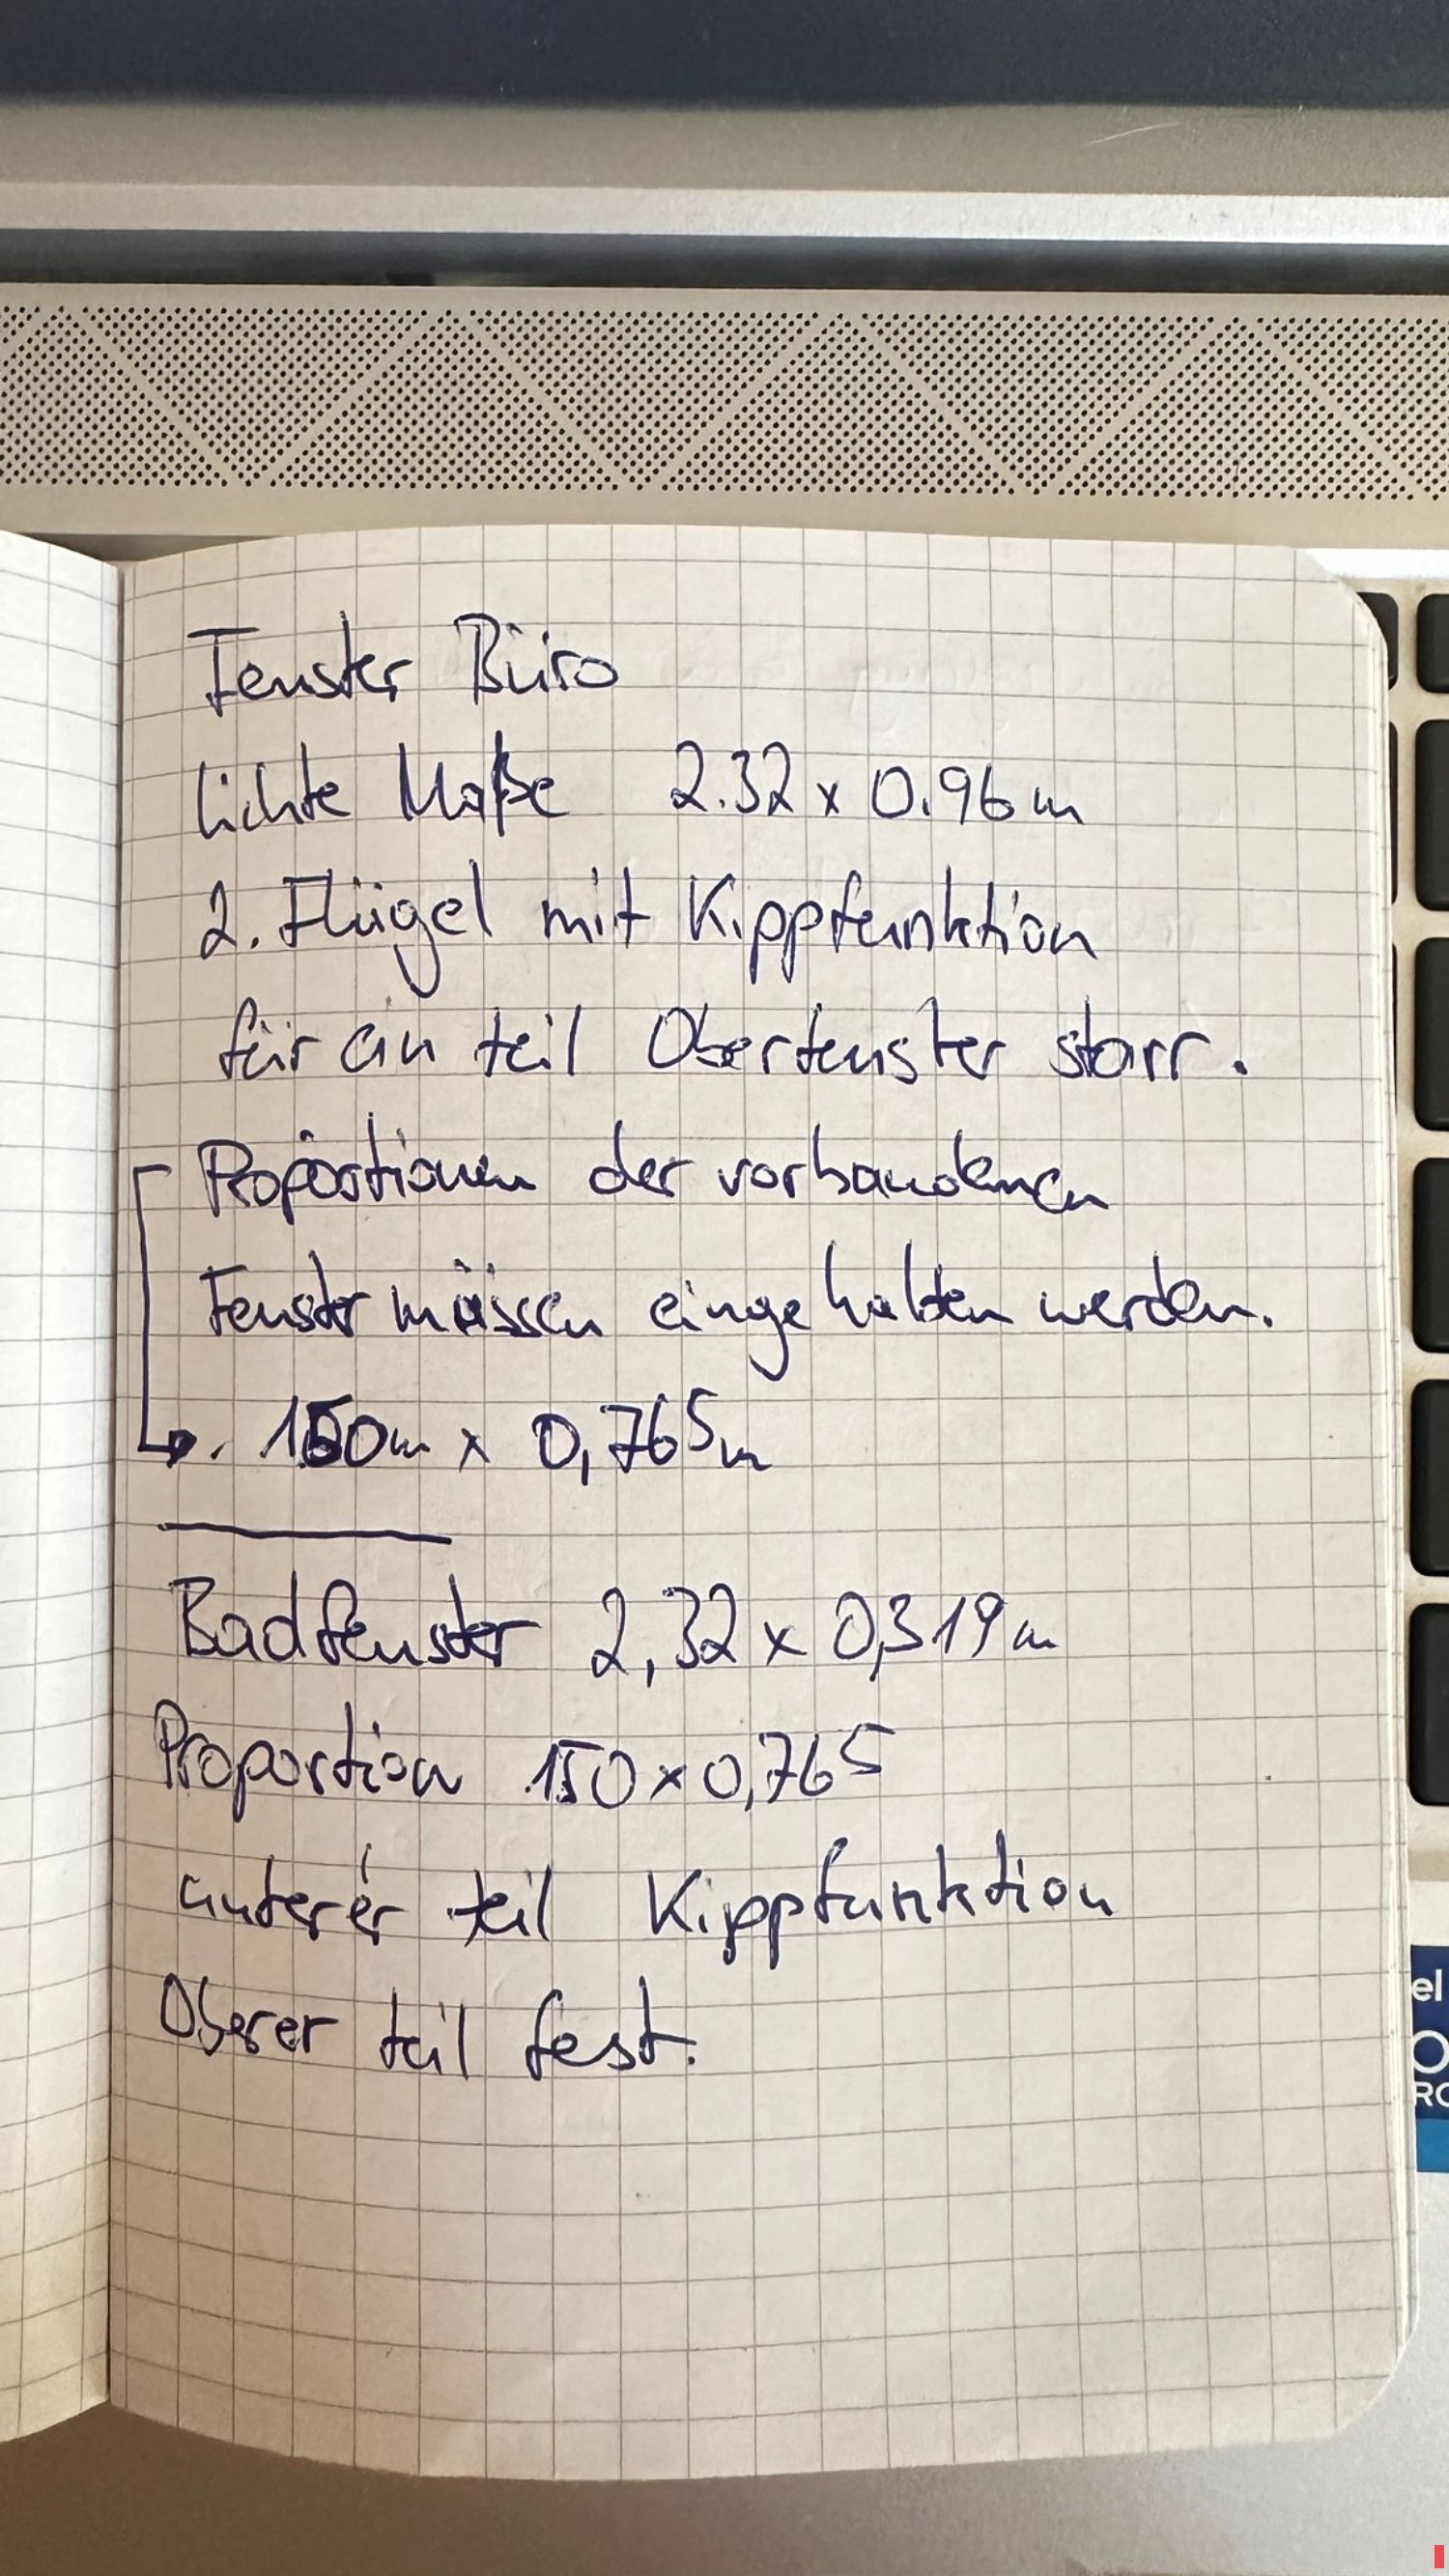 Fenster Büro
lichte Maße 2.32 x 0.96 m
2. Flügel mit Kippfunktion
für ein teil Oberfenster starr.
Proportionen der vorhandenen
Fenster müssen eingehalten werden.
1.50m x 0,765m
Badfenster 2,32 x 0,319 m
Proportion 1.50 x 0,765
unterer teil Kippfunktion
Oberer teil fest.
el
O
RO